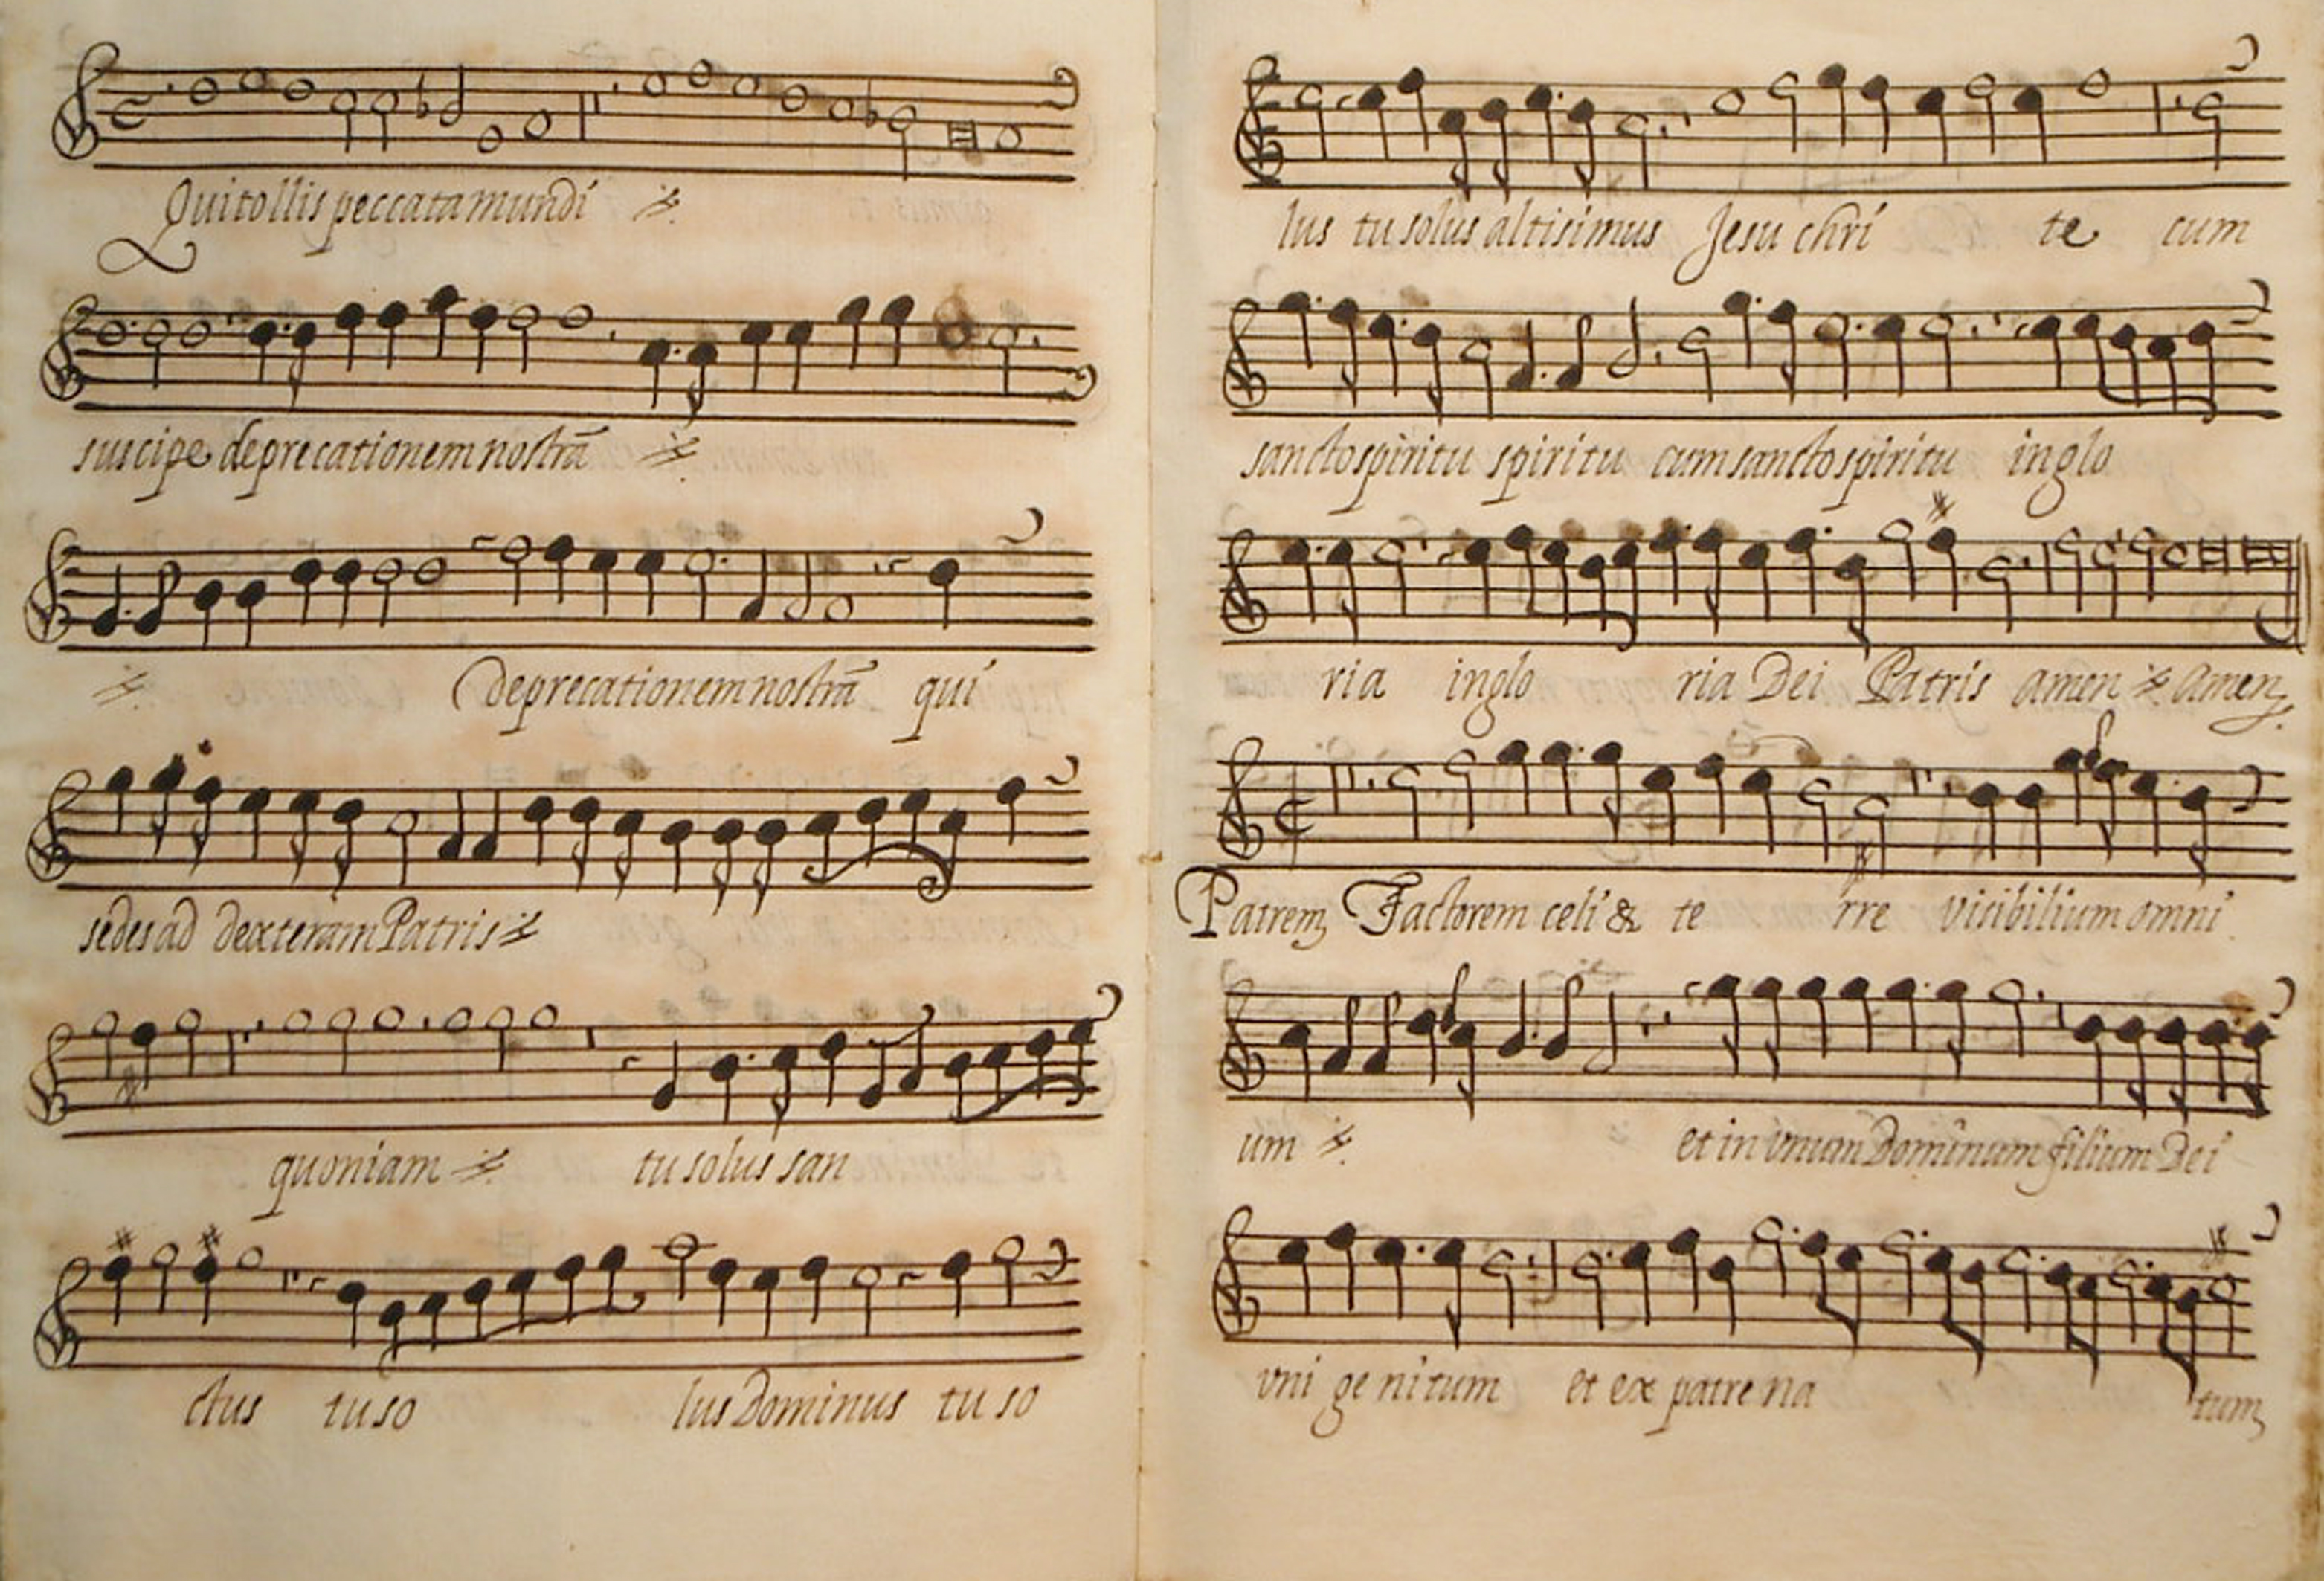 Qui tollis peccata mundi
suscipe deprecationem nostrã
deprecationem nostrã qui
sedes ad dexteram Patris
quoniam tu solus san
ctus tu so lus Dominus tu so
lus tu solus altisimus Jesu chri te cum
sancto spiritu spiritu cum sancto spiritu in glo
ria in glo ria Dei Patris amen amen
Patrem Factorem celi & te rre visibilium omni
um et in vnum Dominum filium Dei
vni ge nitum et ex patre na tum